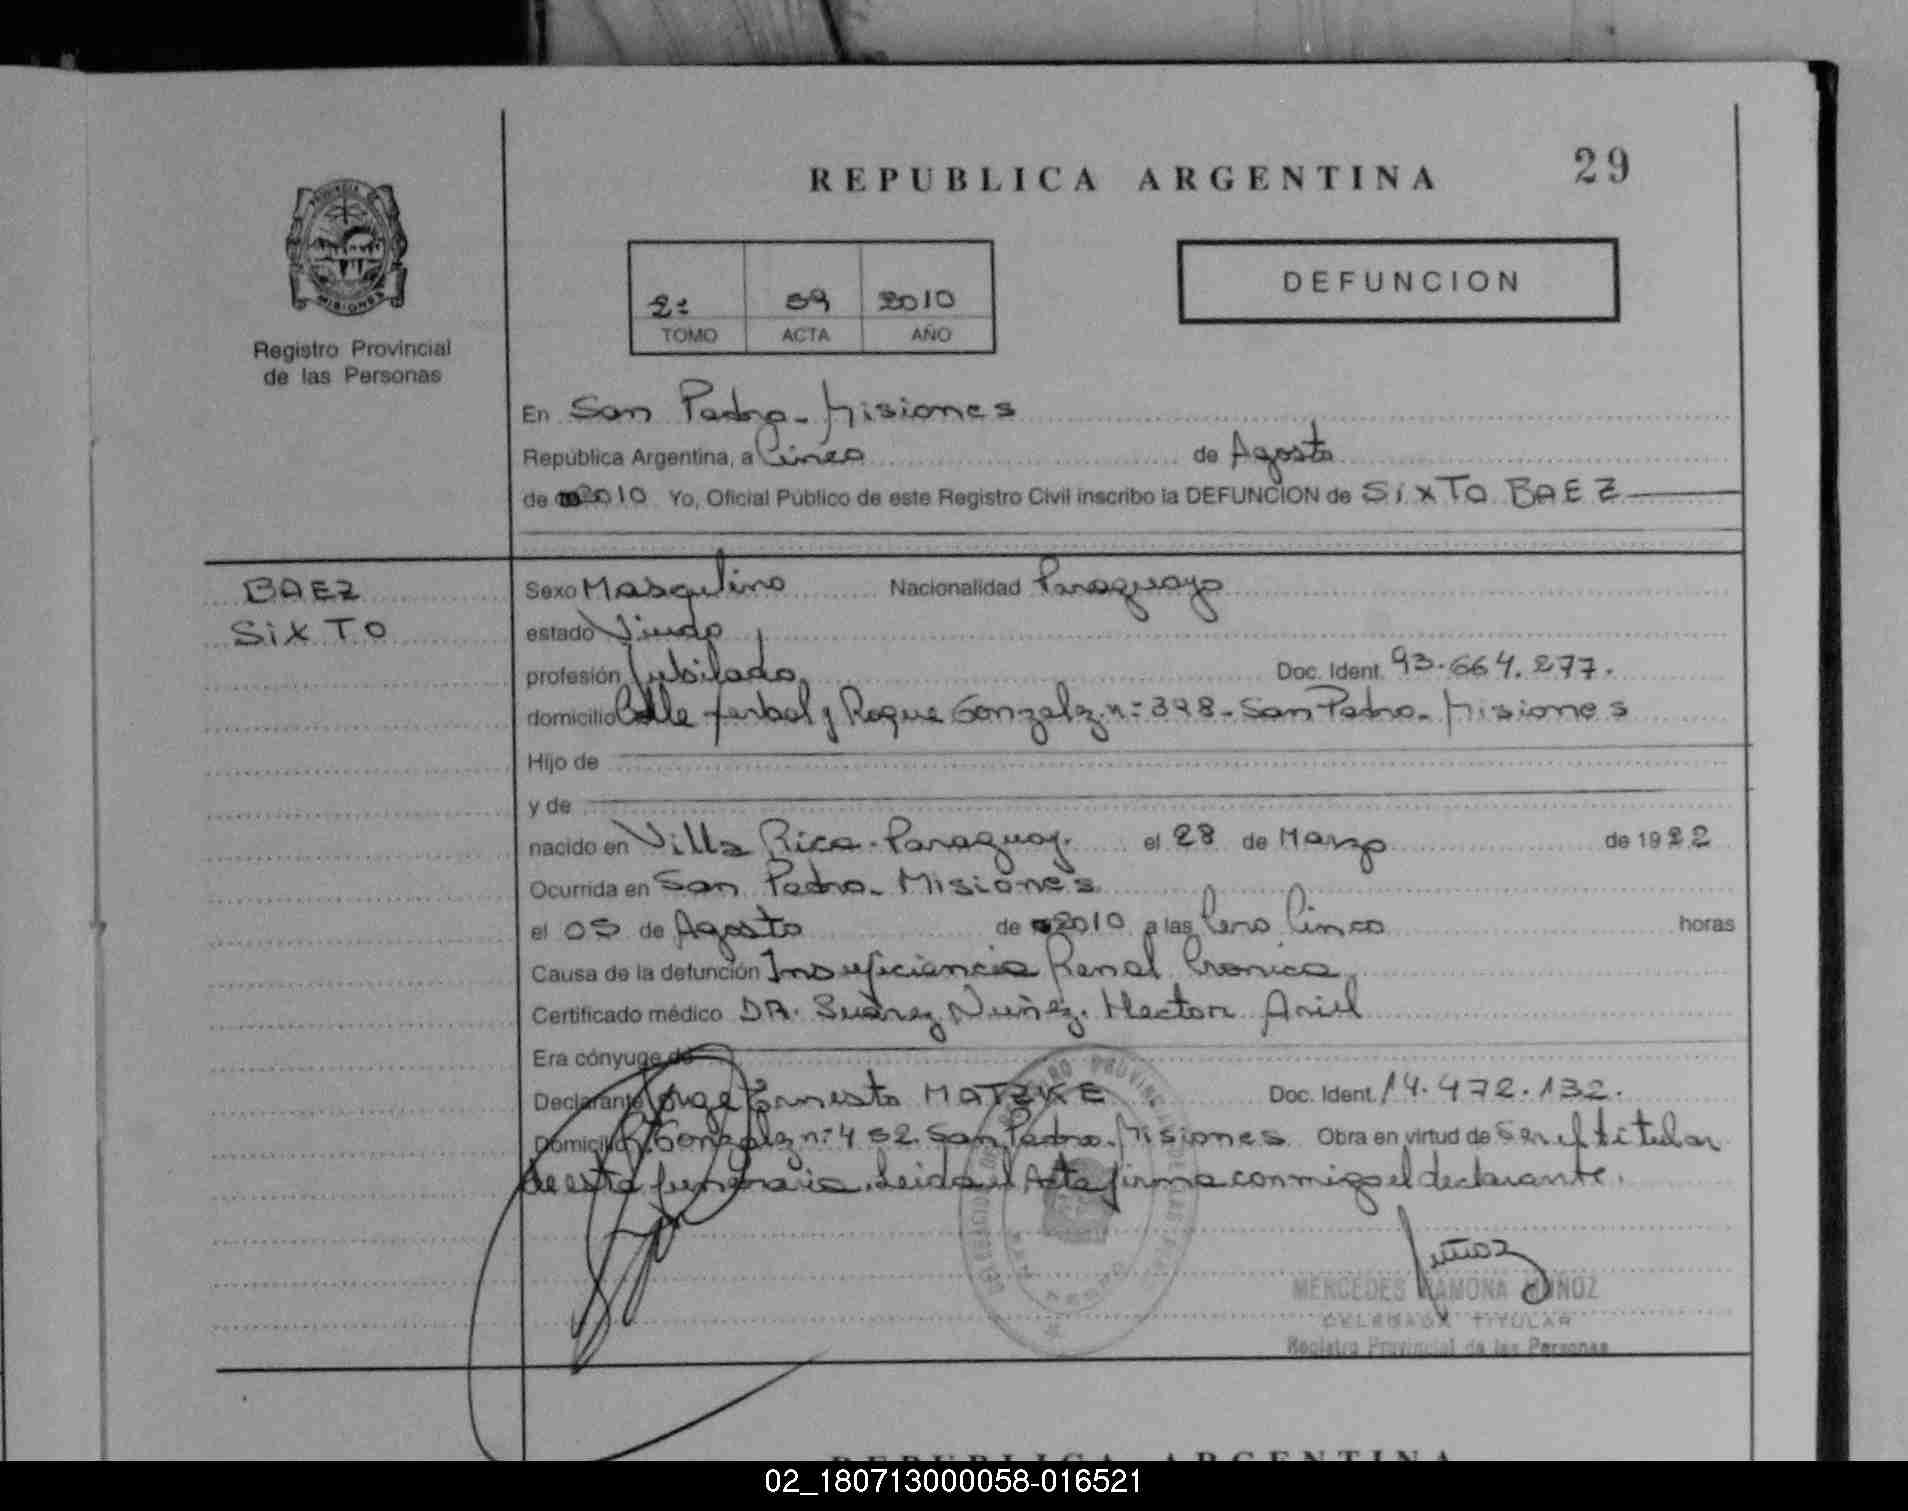 REPUBLICA ARGENTINA
29
PROVINCIA DE
MISIONES
Registro Provincial
de las Personas
2: 59 2010
TOMO ACTA AÑO
DEFUNCION
En San Pedro - Misiones
República Argentina, a Cinco de Agosto
de 2010 Yo, Oficial Público de este Registro Civil inscribo la DEFUNCION de SIXTO BAEZ
BAEZ
SIXTO
Sexo Masqulino Nacionalidad Paraguayo
estado Viudo
profesión Jubilado Doc. Ident. 93.664.277.
domicilio Calle y Roque Gonzalz n: 398 - San Pedro - Misiones
Hijo de
y de
nacido en Villa Rica - Paraguay. el 28 de Marzo de 1922
Ocurrida en San Pedro - Misiones
el 05 de Agosto de 2010 a las Cero Cinco horas
Causa de la defunción Insuficiencia Renal Cronica
Certificado médico DR. Suárez Nuñez. Hector Ariel
Era cónyuge de
Declarante Jorge Ernesto MATZKE Doc. Ident. 14.472.132.
Domicilio R. Gonzalz n: 452. San Pedro - Misiones Obra en virtud de Ser el titular
de esta funeraria. Leida el Acta firma conmigo el declarante.
MERCEDES RAMONA MUÑOZ
DELEGADA TITULAR
Registro Provincial de las Personas
REPUBLICA ARGENTINA
02_180713000058-016521